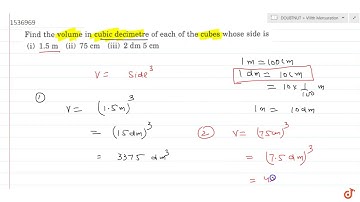 1536969
DOUBTNUT + Whth Mensuration
Find the volume in cubic decimetre of each of the cubes whose side is
(i) 1.5 m (ii) 75 cm (iii) 2 dm 5 cm
V = Side³
1 m = 100 cm
1 dm = 10 cm
= 10 x 1/100 m
1 m = 10 dm
① V = (1.5 m)³
= (15 dm)³
= 3375 dm³
② V = (75 cm)³
= (7.5 dm)³
= 42